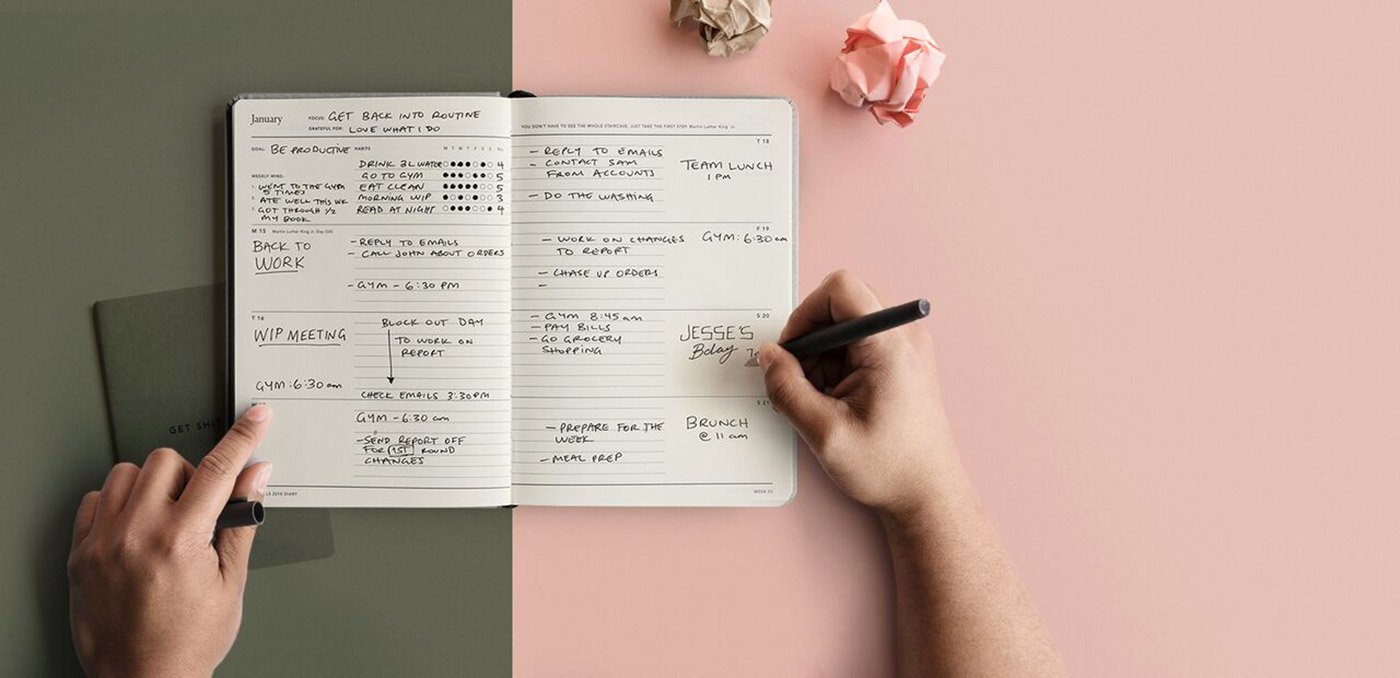 January
FOCUS: GET BACK INTO ROUTINE
GRATEFUL FOR: LOVE WHAT I DO
GOAL: BE PRODUCTIVE
HABITS M T W T F S S
DRINK 3L WATER 4
GO TO GYM 5
EAT CLEAN 5
MORNING WIP 3
READ AT NIGHT 4
WEEKLY WINS:
1. WENT TO THE GYM
5 TIMES
2. ATE WELL THIS WK
3. GOT THROUGH 1/2
MY BOOK
M 15 Martin Luther King Jr. Day (US)
BACK TO
WORK
- REPLY TO EMAILS
- CALL JOHN ABOUT ORDERS
- GYM - 6:30 PM
T 16
WIP MEETING
GYM: 6:30 am
BLOCK OUT DAY
TO WORK ON
REPORT
CHECK EMAILS 3:30PM
GYM - 6:30 am
- SEND REPORT OFF
FOR 1ST ROUND
CHANGES
2018 DIARY
YOU DON'T HAVE TO SEE THE WHOLE STAIRCASE, JUST TAKE THE FIRST STEP Martin Luther King Jr.
T 18
- REPLY TO EMAILS
- CONTACT SAM
FROM ACCOUNTS
- DO THE WASHING
TEAM LUNCH
1 PM
F 19
- WORK ON CHANGES
TO REPORT
- CHASE UP ORDERS
-
GYM: 6:30 am
S 20
- GYM 8:45 am
- PAY BILLS
- GO GROCERY
SHOPPING
JESSE'S
Bday 7
S 21
- PREPARE FOR THE
WEEK
- MEAL PREP
BRUNCH
@ 11 am
WEEK 03
GET SHI